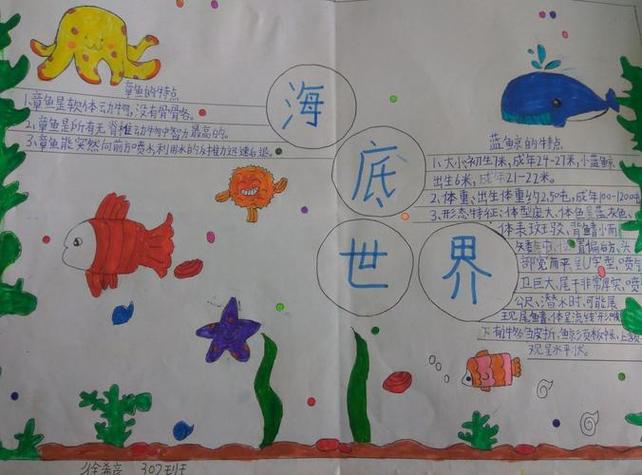 海
底
世
界
章鱼的特点
1.章鱼是软体动物,没有骨骼。
2.章鱼是所有无脊椎动物中智力最高的。
3.章鱼能突然向前方喷水利用水的反推力迅速后退。
蓝鲸的特点
1.大小初生7米,成年24-27米,小蓝鲸
出生6米,成年21-22米。
2.体重:出生体重约2.5吨,成年100-120吨
3.形态特征:体型庞大,体色呈蓝灰色,
体表
背鳍小而
部宽而平呈U字型,喷
巨大,尾干非常厚实,喷
公尺,潜水时,可能展
现尾鳍,体呈流线形
观呈水平状。
徐希彦 307班